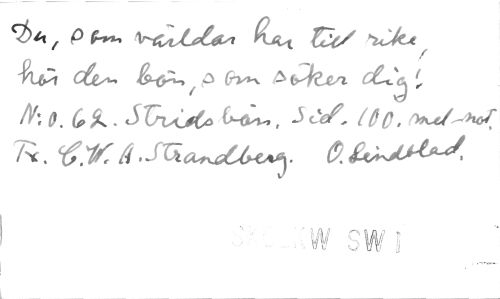 Du, som världar har till rike,
hör den bön, som söker dig!
N:o. 62. Stridsbön. Sid. 100. mel-not.
Tx. C.W.A. Strandberg. O. Lindblad.